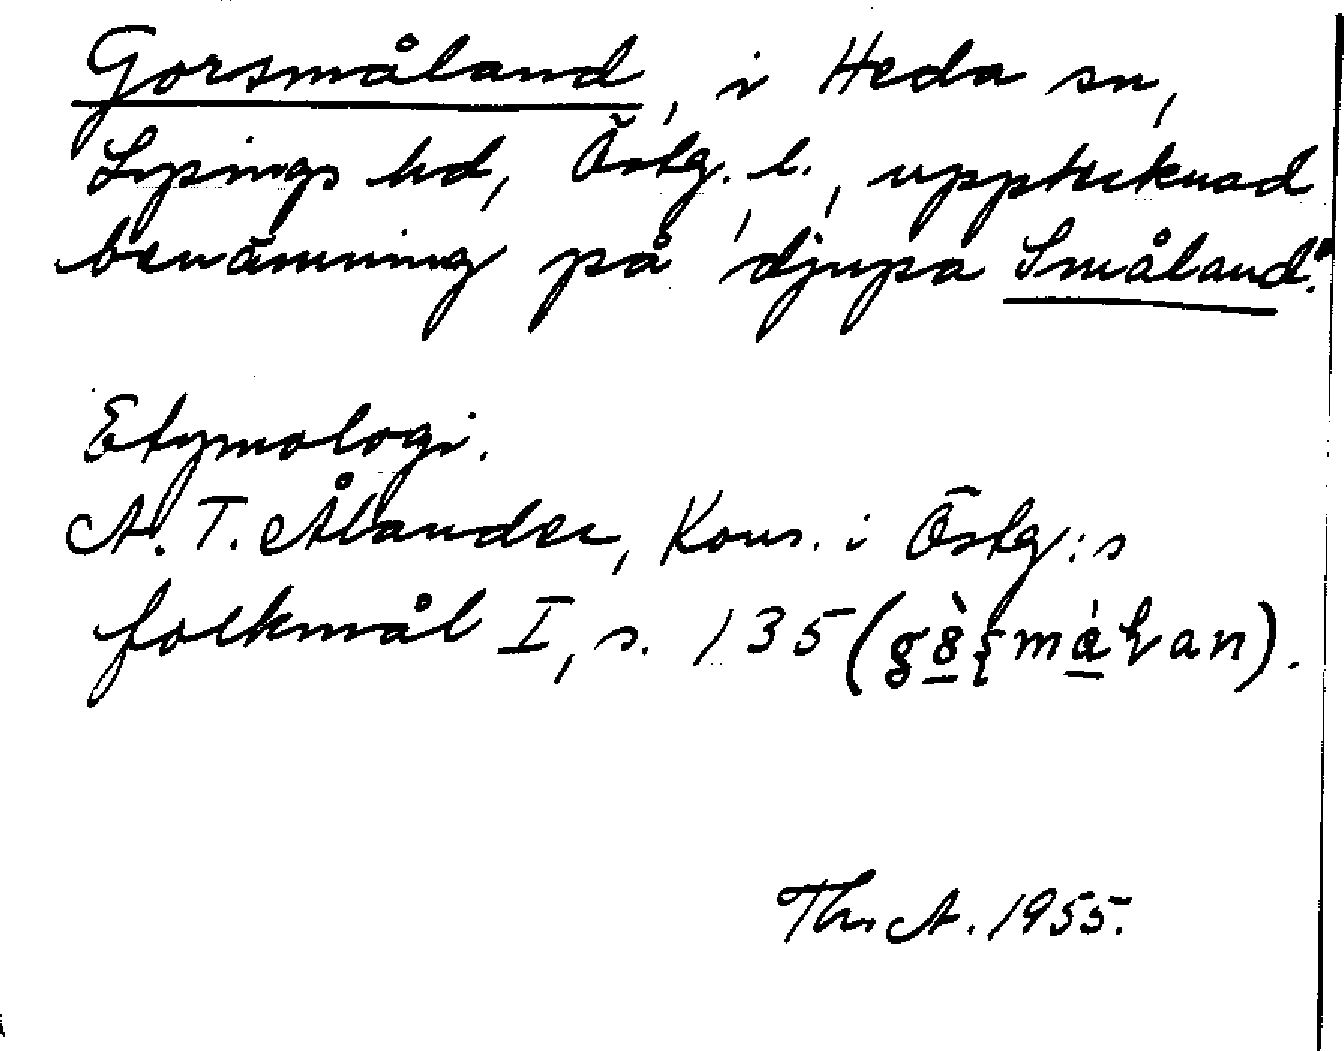 Gorsmåland, i Heda sn,
Lysings hd, Östg. l., upptecknad
benämning på "djupa Småland".
Etymologi.
A. T. Ålander, Kons. i Östg:s
folkmål I, s. 135
Th. A. 1955.